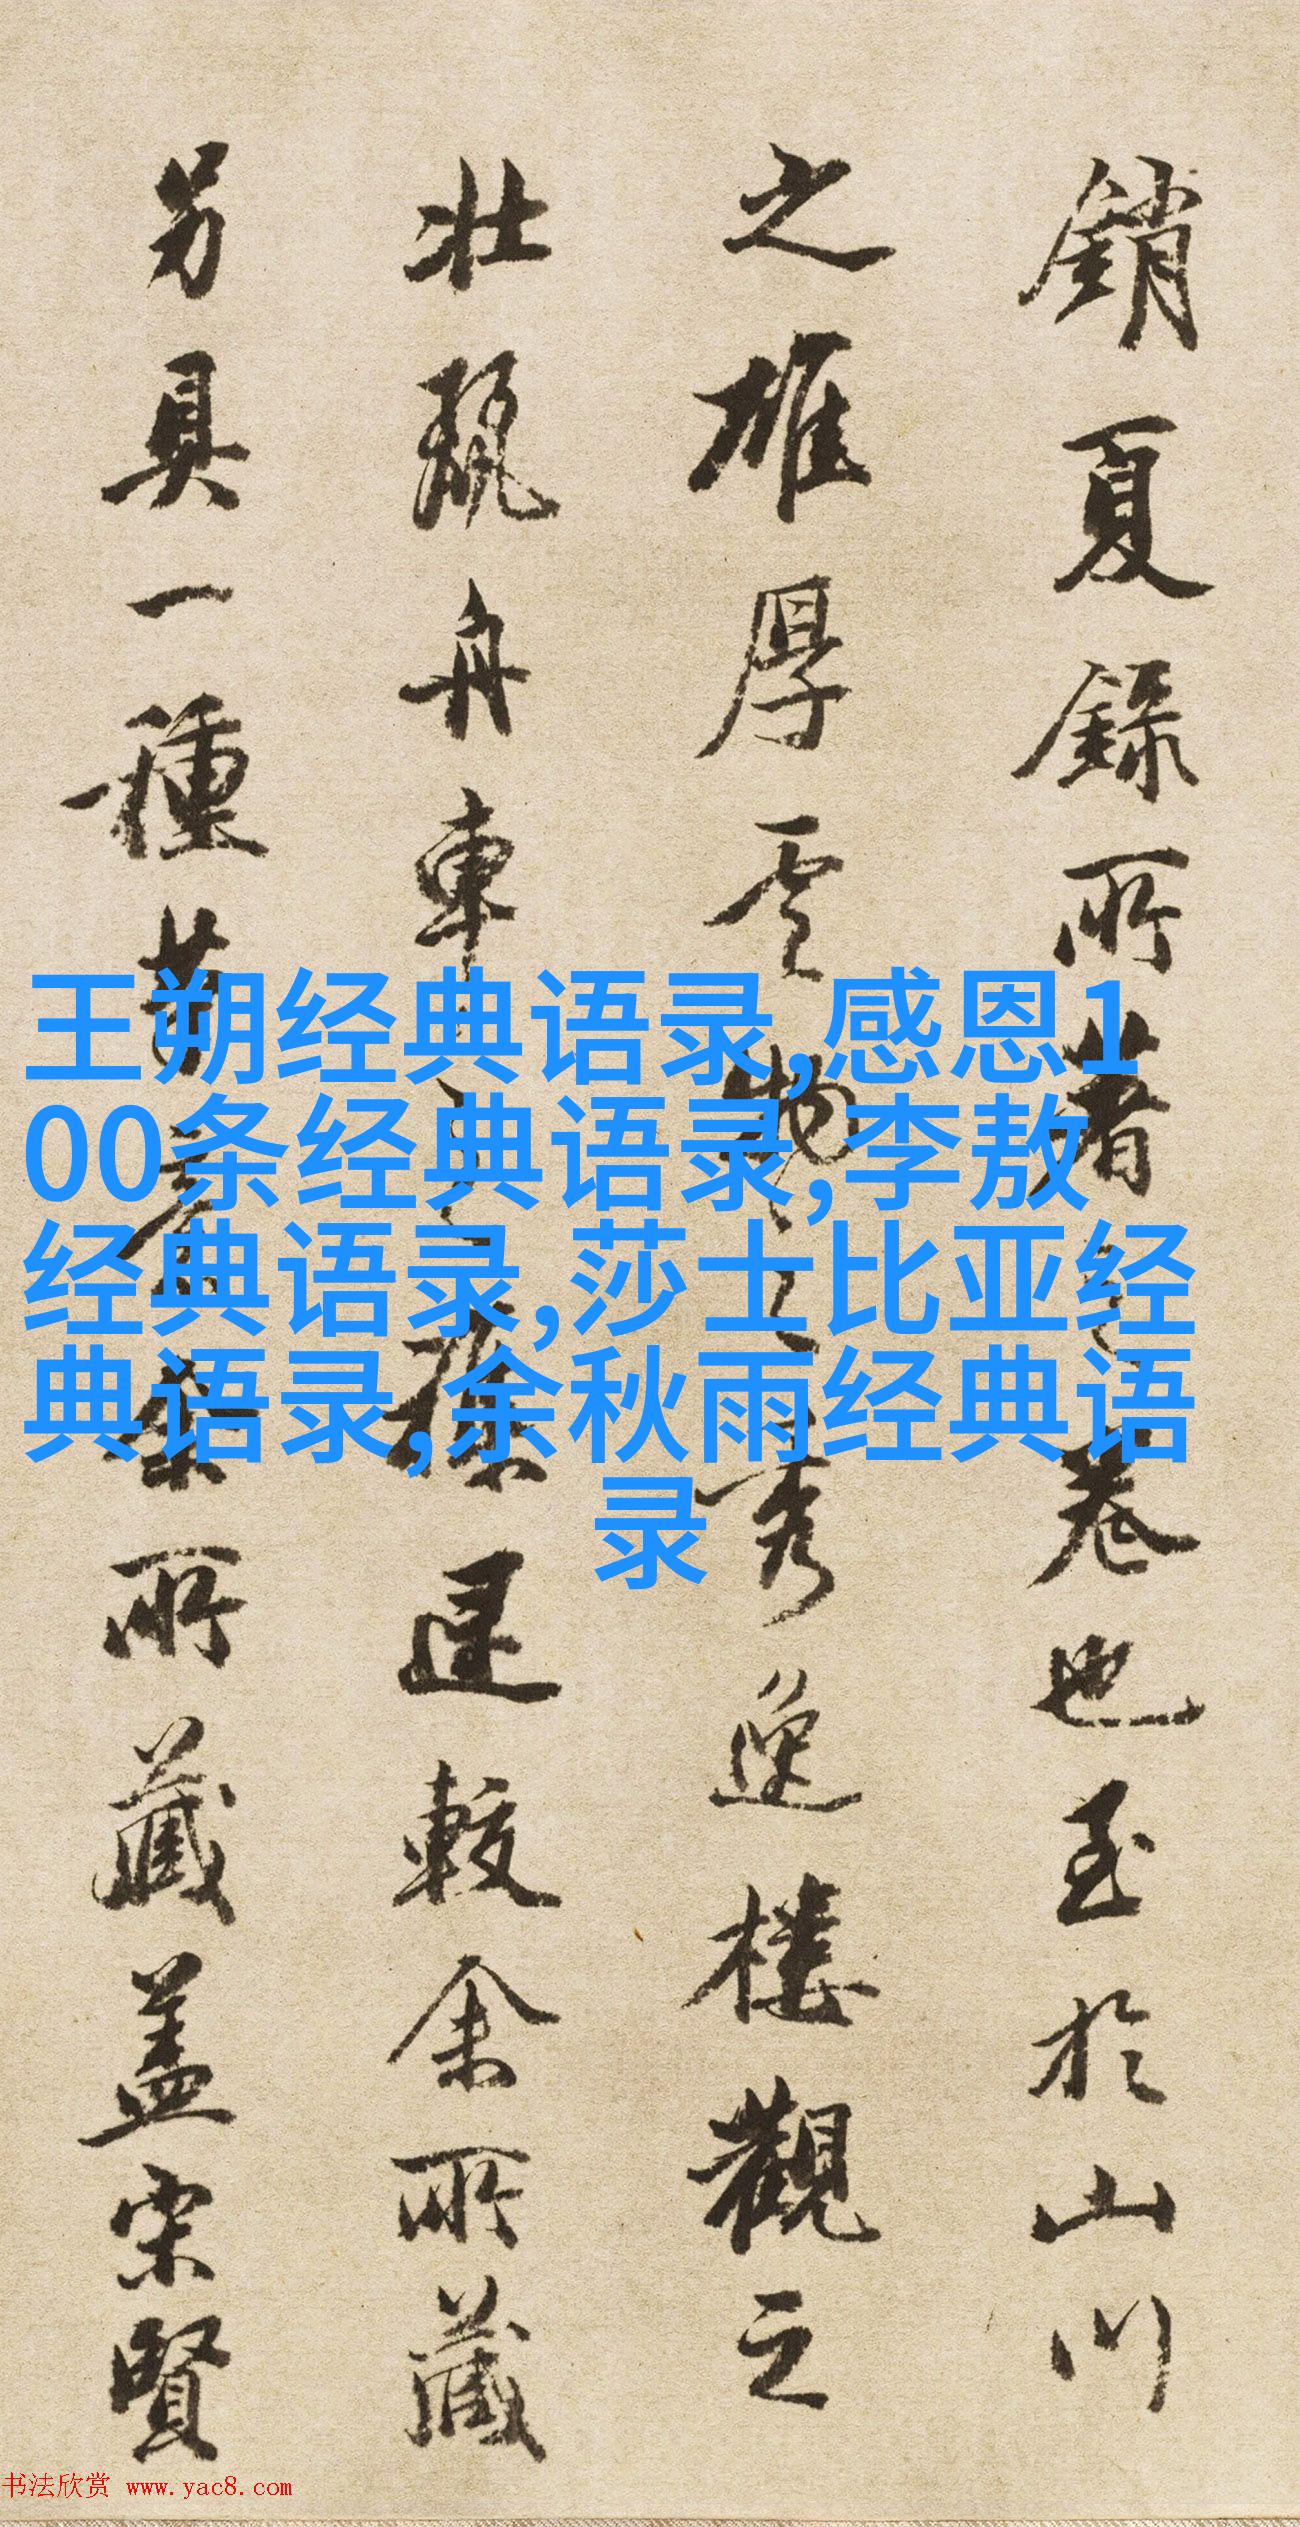 銷夏録所著之卷也至於山川
之雄厚雲物之秀逸樓觀之
壯麗舟車之
遲較余所藏
另具一種
所藏蓋宋賢
王朔经典语录,感恩1
00条经典语录,李敖
经典语录,莎士比亚经
典语录,余秋雨经典语
录
书法欣赏 www.yac8.com